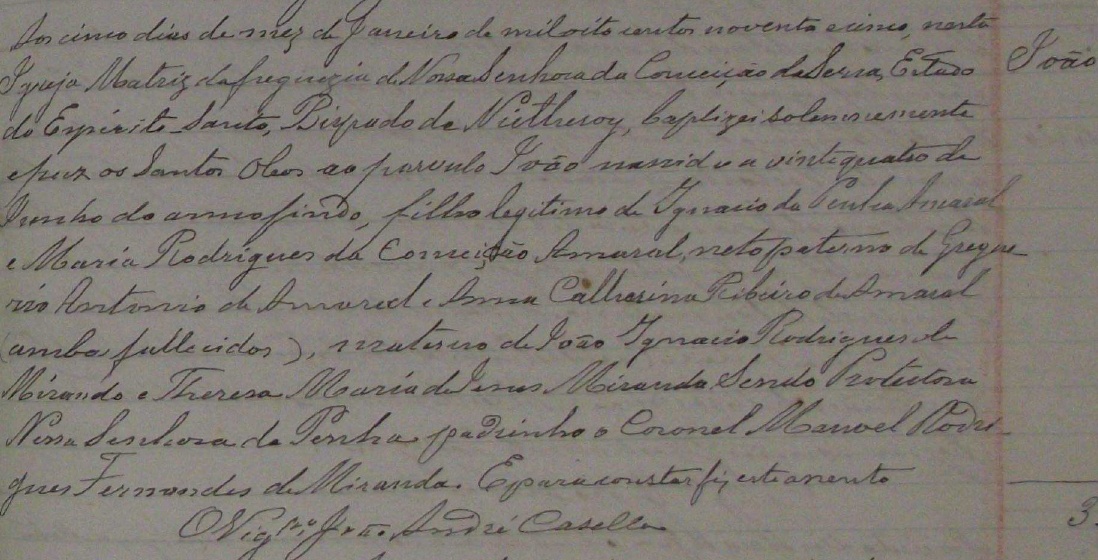 Aos cinco dias de mez de Janeiro de mil oito centos noventa e cinco, nesta
Igreja Matriz da freguezia de Nossa Senhora da Conceição da Serra, Estado
João
do Espirito Santo, Bispado de Nictheroy, baptizei solennemente
e puz os Santos Oleos ao parvulo João nascido a vinte quatro de
Junho do anno findo, filho legitimo de Ignacio da Penha Amaral
e Maria Rodrigues da Conceição Amaral, neto paterno de Grego
rio Antonio de Amaral e Anna Catherina Ribeiro de Amaral
(ambos fallecidos), materno de João Ignacio Rodrigues de
Miranda e Theresa Maria de Jesus Miranda. Sendo Protectora
Nossa Senhora da Penha padrinho o Coronel Manoel Rodri-
gues Fernandes de Miranda. E para constar fiz este assento
O Vigr.o João André Casella
3